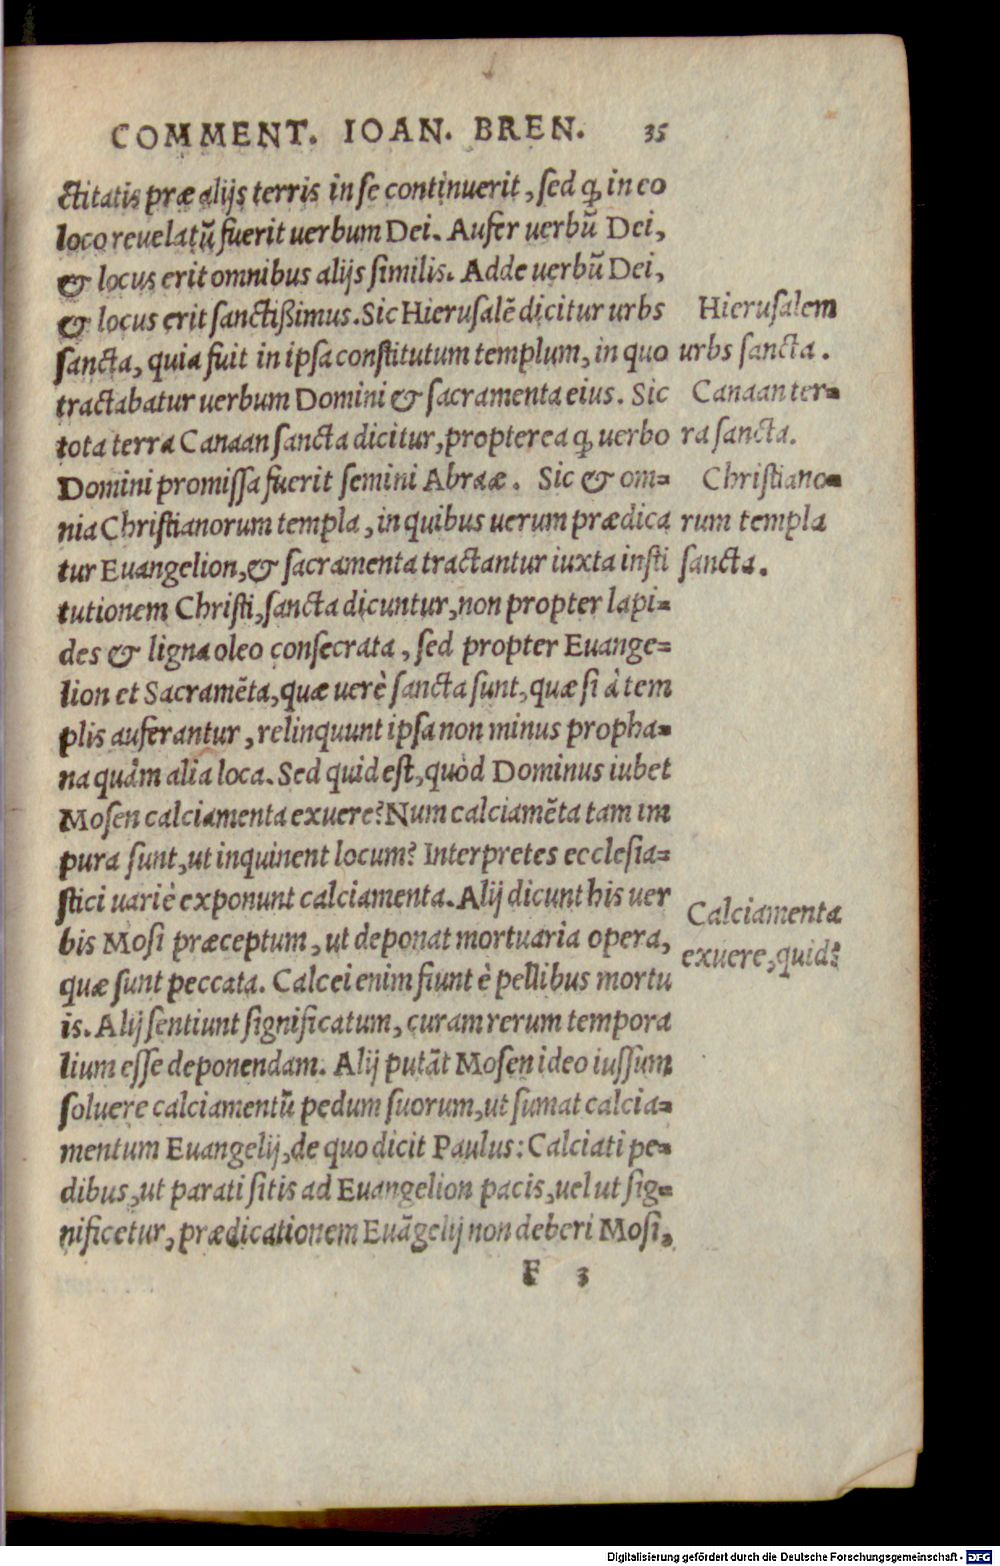 COMMENT. IOAN. BREN. 35
ctitatis præ alijs terris in se continuerit, sed ꝙ in eo
loco reuelatũ fuerit uerbum Dei. Aufer uerbũ Dei,
& locus erit omnibus alijs similis. Adde uerbũ Dei,
& locus erit sanctißimus. Sic Hierusalẽ dicitur urbs
sancta, quia fuit in ipsa constitutum templum, in quo
tractabatur uerbum Domini & sacramenta eius. Sic
tota terra Canaan sancta dicitur, propterea ꝙ uerbo
Domini promissa fuerit semini Abraæ. Sic & om=
nia Christianorum templa, in quibus uerum prædica
tur Euangelion, & sacramenta tractantur iuxta insti
tutionem Christi, sancta dicuntur, non propter lapi=
des & ligna oleo consecrata, sed propter Euange=
lion et Sacramẽta, quæ uerè sancta sunt, quæ si à tem
plis auferantur, relinquunt ipsa non minus propha=
na quàm alia loca. Sed quid est, quòd Dominus iubet
Mosen calciamenta exuere? Num calciamẽta tam im
pura sunt, ut inquinent locum? Interpretes ecclesia=
stici uariè exponunt calciamenta. Alij dicunt his uer
bis Mosi præceptum, ut deponat mortuaria opera,
quæ sunt peccata. Calcei enim fiunt è pellibus mortu
is. Alij sentiunt significatum, curam rerum tempora
lium esse deponendam. Alij putãt Mosen ideo iussum
soluere calciamentũ pedum suorum, ut sumat calcia=
mentum Euangelij, de quo dicit Paulus: Calciati pe=
dibus, ut parati sitis ad Euangelion pacis, uel ut sig=
nificetur, prædicationem Euãgelij non deberi Mosi,
F 3
Hierusalem
urbs sancta.
Canaan ter=
ra sancta.
Christiano=
rum templa
sancta.
Calciamenta
exuere, quid?
Digitalisierung gefördert durch die Deutsche Forschungsgemeinschaft - DFG